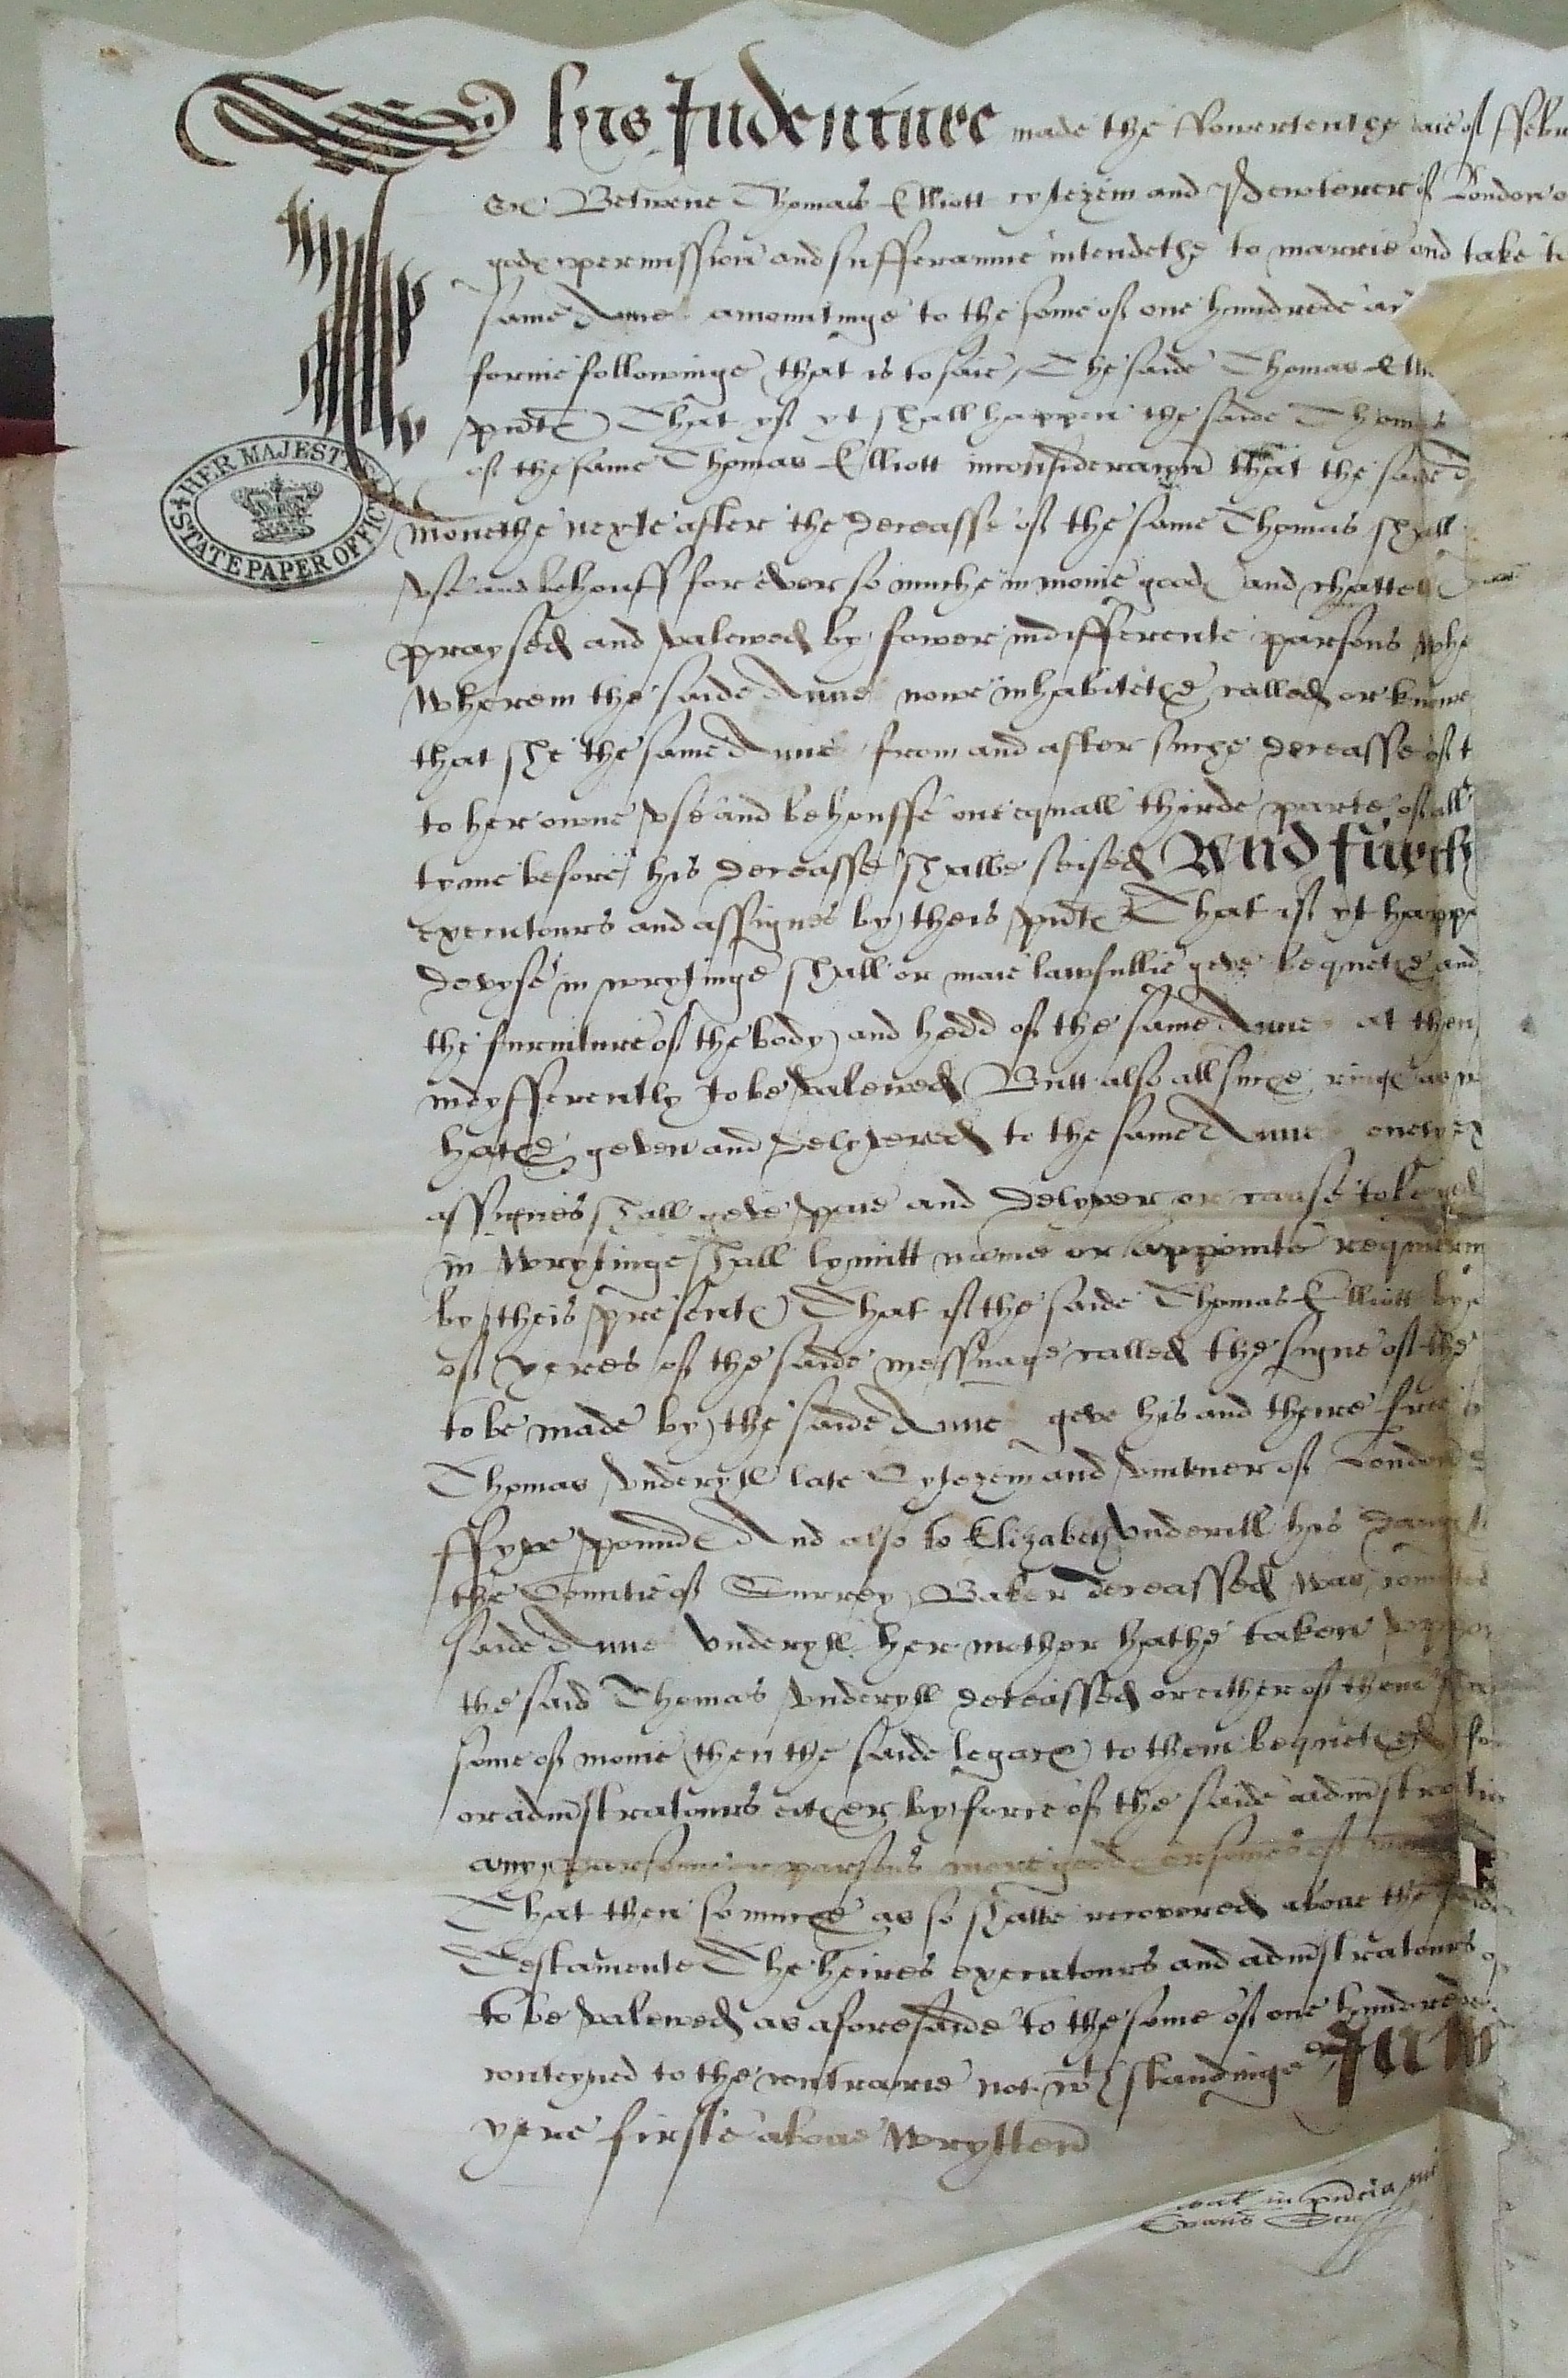 This Indenture made the ffowertenthe daie of ffebr
&c Betwene Thomas Elliott cytezein and Pewterer of London
godes permission and sufferaunce intendethe to marrie and take to
same Anne amountinge to the some of one hundrede
forme followinge, that is to saie, The saide Thomas Elli
pñtes That yf yt shall happen the saide Thomas
of the same Thomas Elliott in consideracion that the saide
monethe nexte after the deceasse of the same Thomas shall
vse and behouff for ever so muche in monie goodes and chattells
praysed and valewed by fower indifferente parsons whe
wherein the saide Anne nowe inhabitethe called or knowe
that she the same Anne from and after suche deceasse of t
to her owne vse and behouffe one equall thirde parte of all
tyme before his deceasse shalbe seised And further
executours and assignes by theis pñtes That if yt happe
devyse in wrytinge shall or maie lawfullie geve bequethe and
the furniture of the body and hedd of the same Anne at then
indyfferently to be valewed Butt also all suche ringes as
hathe geven and delyvered to the same Anne
assignes shall geve paie and delyver or cause to be
in wrytinge shall lymitt name or appointe requiringe
by theis presentes That if the saide Thomas Elliott by
of yeres of the saide messuage called the signe of the
to be made by the saide Anne geve his and theire free
Thomas Vnderyll late Cytezein and vintner of London
ffyve poundes And also to Elizabeth Vnderill his daught
the Countie of Surrey Baker deceassed was comitted
saide Anne Vnderyll her mother hathe taken vppon
the said Thomas Vnderyll deceassed or either of them
some of monie then the saide legaces to them bequethed
or adm̃stratours either by force of the saide adm̃stration
any parsonne or parsons more goodes or somes of monie
That then so muche as so shalbe recovered above the saide
Testamente The heires executours and adm̃stratours
to be valewed as aforesaide to the some of one hundrede
conteyned to the contrarie not wtstandinge In
yere firste above wrytten
in pñcia mei
Evans Scr
HER MAJESTY'S
STATE PAPER OFFICE